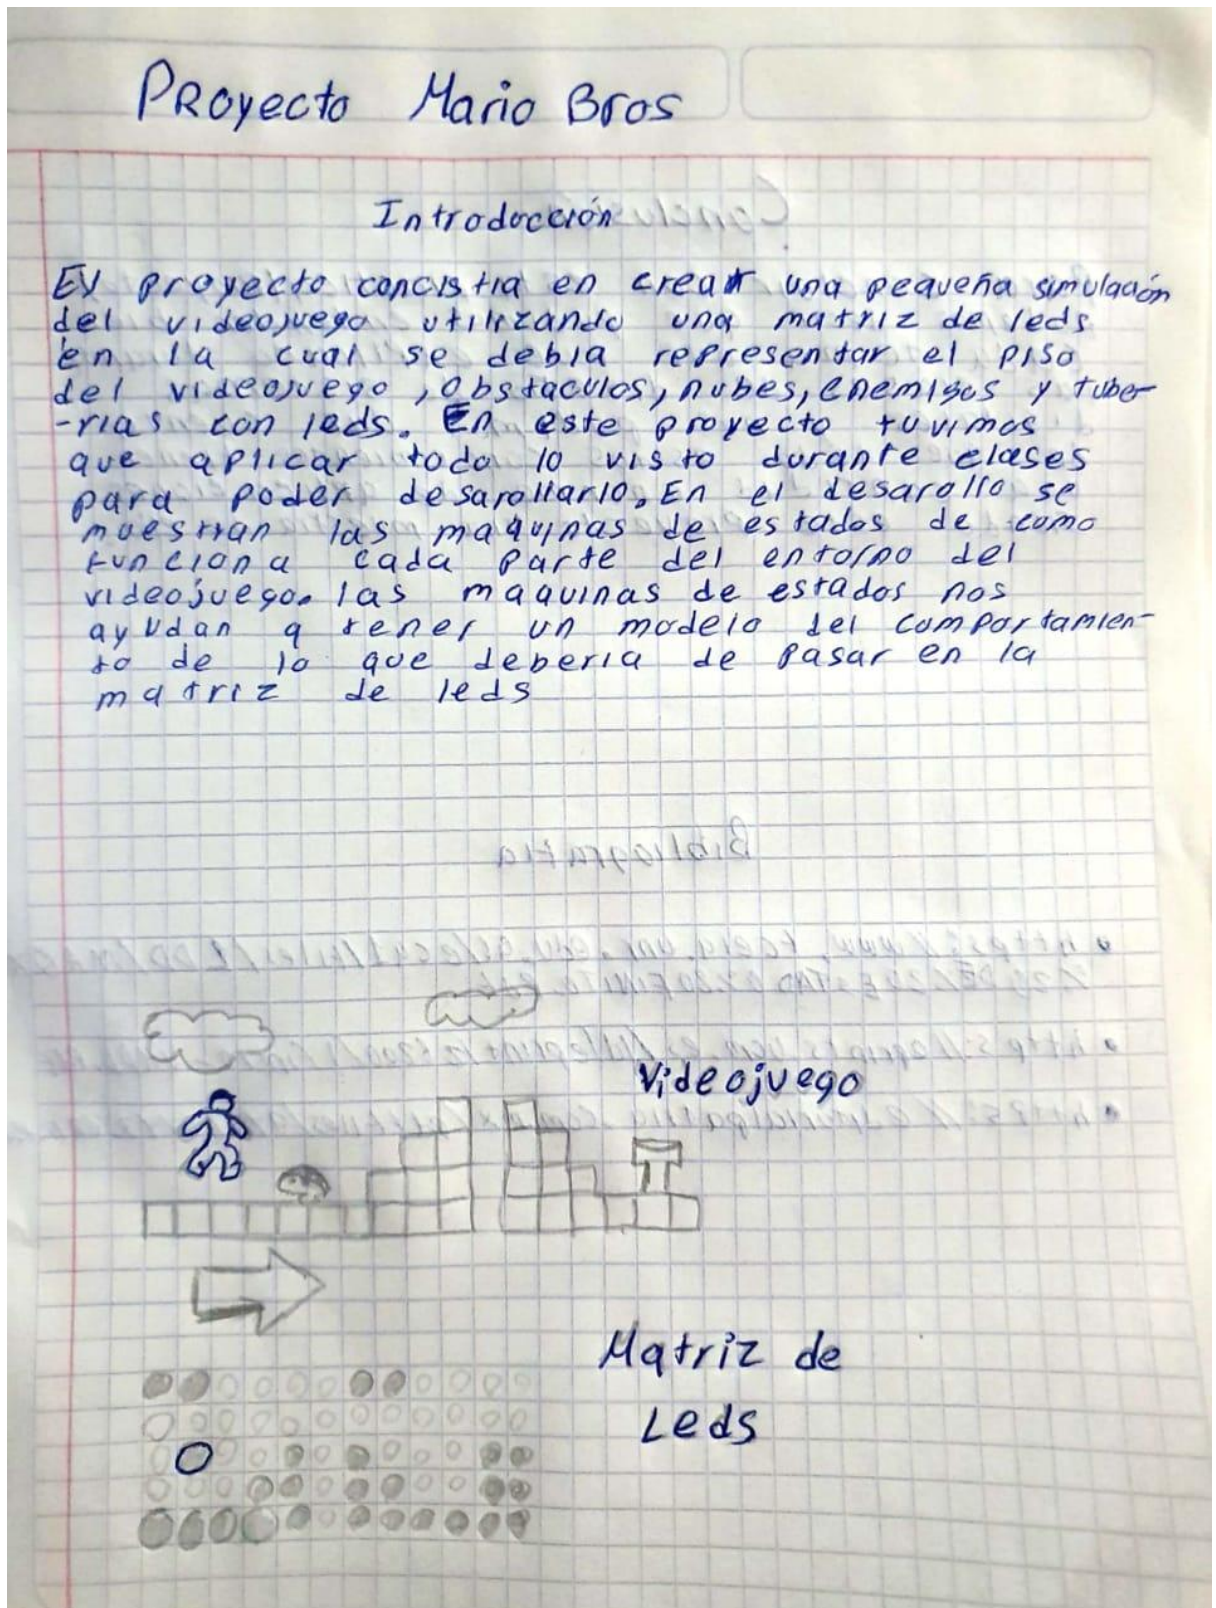 Proyecto Mario Bros
Introducción
El proyecto concistia en crear una pequeña simulación
del videojuego utilizando una matriz de leds
en la cual se debia representar el piso
del videojuego, Obstaculos, nubes, enemigos y tube-
-rias con leds. En este proyecto tuvimos
que aplicar todo lo visto durante clases
para poder desarollarlo. En el desarollo se
muestran las maquinas de estados de como
funciona cada parte del entorno del
videojuego. las maquinas de estados nos
ayudan a tener un modelo del comportamien-
to de lo que deberia de pasar en la
matriz de leds
Bibliografia
Videojuego
Matriz de
Leds